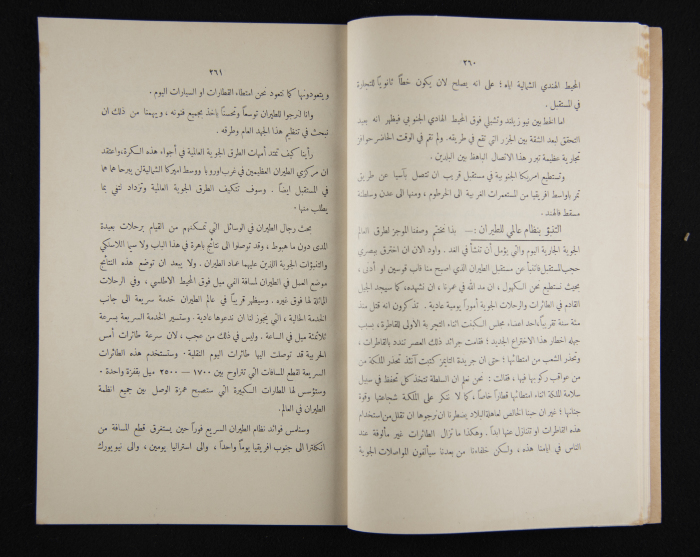 ٢٦٠
المحيط الهندي الشمالية اياه ؛ على انه يصلح لان يكون خطاً ثانوياً للتجارة
في المستقبل .
اما الخط بين نيوزيلند وتشيلي فوق المحيط الهادي الجنوبي فيظهر انه بعيد
التحقق لبعد الشقة بين الجزر التي تقع في طريقه . ولم تقم في الوقت الحاضر حوافز
تجارية عظيمة تبرر هذا الاتصال الباهظ بين البلدين .
وتستطيع اميركا الجنوبية في مستقبل قريب ان تتصل بآسيا عن طريق
تمر باواسط افريقيا من المستعمرات الغربية الى الخرطوم ، ومنها الى عدن وسلطنة
مسقط فالهند .
التنبؤ بنظام عالمي للطيران :— بذا نختم وصفنا الموجز لطرق العالم
الجوية الجارية اليوم والتي يؤمل أن تنشأ في الغد . واود الان ان اخترق ببصري
حجب المستقبل فأتنبأ عن مستقبل الطيران الذي اصبح منا قاب قوسين او أدنى ،
بحيث نستطيع نحن الكهول ، ان مد الله في عمرنا ، ان نشهده، كما سيجد الجيل
القادم في الطائرات والرحلات الجوية أموراً يومية عادية . تذكرون انه قتل منذ
مئة سنة تقريباً احد اعضاء مجلس السكنت اثناء التجربة الاولى للقاطرة، بسبب
جهله اخطار هذا الاختراع الجديد ؛ فقامت جرائد ذلك العصر تندد بالقاطرات ،
وتحذر الشعب من امتطائها ؛ حتى ان جريدة التايمز كتبت آنئذ تحذر الملكة من
من عواقب ركوبها فيها ، فقالت : نحن نعلم ان السلطة تتخذ كل تحفظ في سبيل
سلامة الملكة اثناء امتطائها قطاراً خاصاً ، كما لا ننكر على الملكة شجاعتها وقوة
جنانها ؛ غير ان حبنا الخالص لعاهلة البلاد يضطرنا ان نرجوها ان تقلل من استخدام
هذه القاطرات او تتنازل عنها ابداً . وهكذا ما تزال الطائرات غير مألوفة عند
الناس في ايامنا هذه ، ولكن خلفاءنا من بعدنا سيألفون المواصلات الجوية
٢٦١
ويتعودونها كما نتعود نحن امتطاء القطارات او السيارات اليوم .
وانا لنرجوا للطيران توسعاً وتحسناً يأخذ بجميع فنونه ، ويهمنا من ذلك ان
نبحث في تنظيم هذا الجهيد العام وطرقه .
رأينا كيف تمتد أمهات الطرق الجوية العالمية في أجواء هذه الكرة. واعتقد
ان مركزي الطيران العظيمين في غرب اوروبا ووسط اميركا الشمالية لن يبرحا هما هما
في المستقبل ايضاً . وسوف تتكيف الطرق الجوية العالمية وتزداد لتفي بما
يطلب منها .
بحث رجال الطيران في الوسائل التي تمكنهم من القيام برحلات بعيدة
المدى دون ما هبوط ، وقد توصلوا الى نتائج باهرة في هذا الباب ولا سيما اللاسلكي
والتنبؤات الجوية اللذين عليهما عماد الطيران . ولا يبعد ان توضع هذه النتائج
موضع العمل في الطيران لمسافة الفي ميل فوق المحيط الاطلسي ، وفي الرحلات
المماثلة لها فوق غيره . وسيظهر قريباً في عالم الطيران خدمة سريعة الى جانب
الخدمة الحالية ، التي يجوز لنا ان ندعوها عادية . وستسير الخدمة السريعة بسرعة
ثلاثمئة ميل في الساعة . وليس في ذلك من عجب ، لان سرعة طائرات أمس
الحربية قد توصلت اليها طائرات اليوم النقلية . وستستخدم هذه الطائرات
السريعة لقطع المسافات التي تتراوح بين ١٧٠٠ — ٢٥٠٠ ميل بقفزة واحدة .
وستؤسس لها المطارات الكبيرة التي ستصبح همزة الوصل بين جميع انظمة
الطيران في العالم.
وستلمس فوائد نظام الطيران السريع فوراً حين يستغرق قطع المسافة من
انكلترا الى جنوب افريقيا يوماً واحداً ، والى استراليا يومين ، والى نيويورك